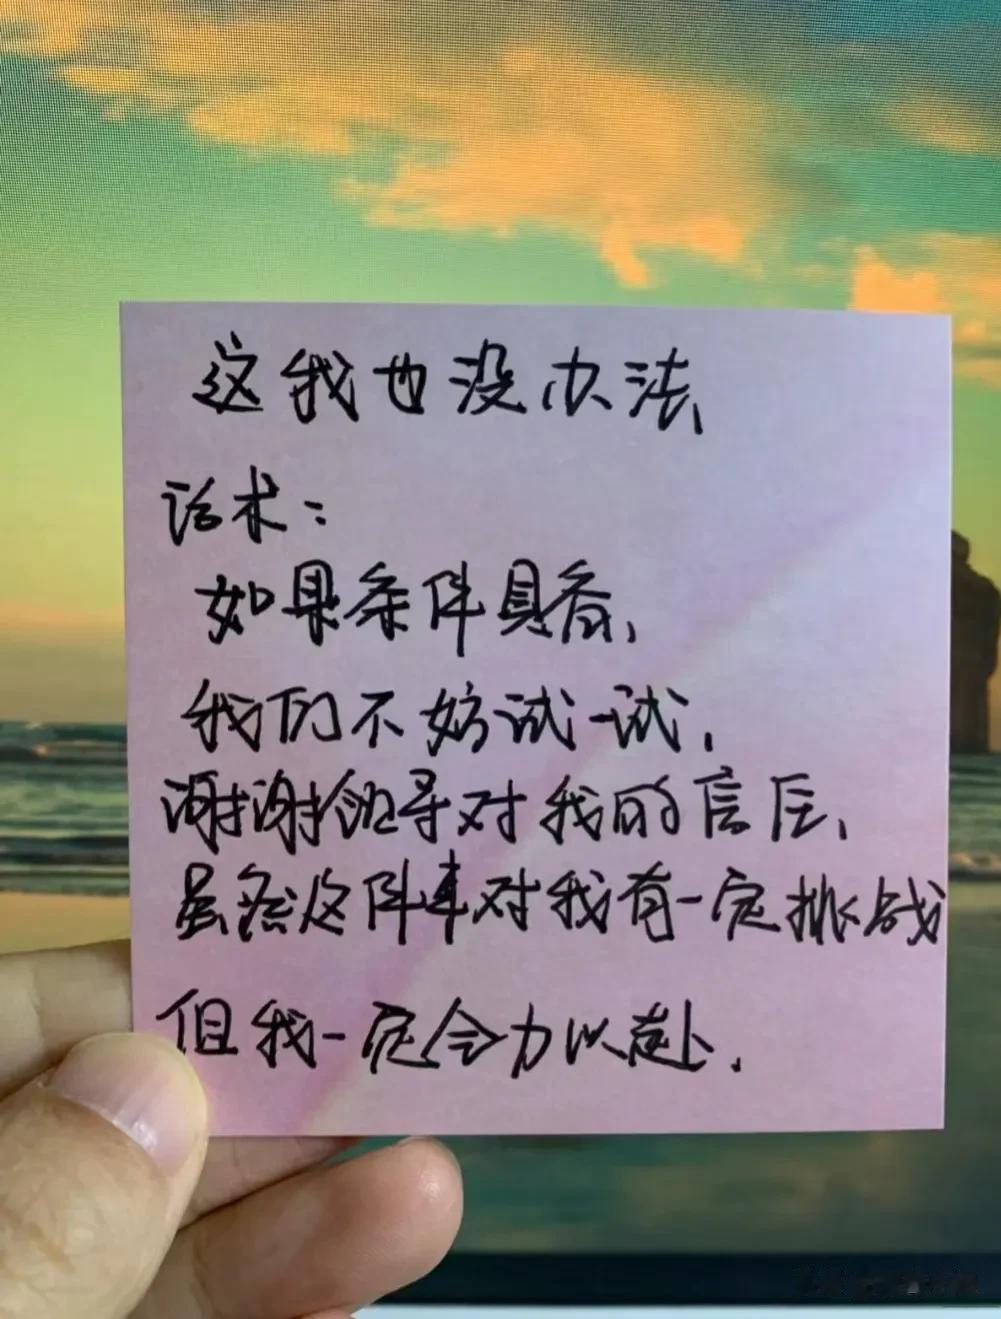 这我也没办法
话术：
如果条件具备，
我们不妨试一试，
谢谢领导对我的信任，
虽然这件事对我有一定挑战
但我一定会力以赴，